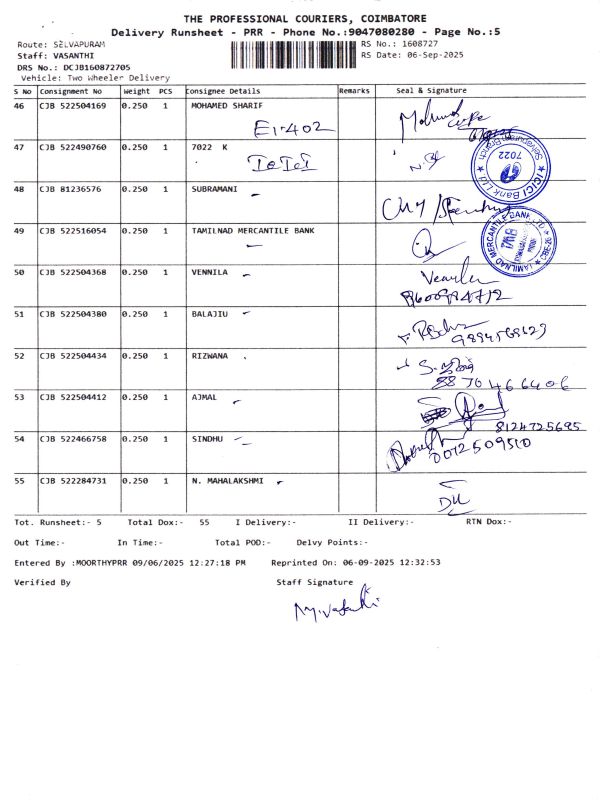 THE PROFESSIONAL COURIERS, COIMBATORE
Delivery Runsheet - PRR - Phone No.:9047080280 - Page No.:5
Route: SELVAPURAM
RS No.: 1608727
Staff: VASANTHI
RS Date: 06-Sep-2025
DRS No.: DCJB160872705
Vehicle: Two Wheeler Delivery
S No Consignment No Weight PCS Consignee Details Remarks Seal & Signature
46 CJB 522504169 0.250 1 MOHAMED SHARIF
E1-402
47 CJB 522490760 0.250 1 7022 K
ICICI Bank Ltd. Selvapuram Branch 7022
48 CJB 81236576 0.250 1 SUBRAMANI
49 CJB 522516054 0.250 1 TAMILNAD MERCANTILE BANK
TAMILNAD MERCANTILE BANK LTD CBE-26
50 CJB 522504368 0.250 1 VENNILA
51 CJB 522504380 0.250 1 BALAJIU
52 CJB 522504434 0.250 1 RIZWANA
8870466406
53 CJB 522504412 0.250 1 AJMAL
8124725695
54 CJB 522466758 0.250 1 SINDHU
55 CJB 522284731 0.250 1 N. MAHALAKSHMI
Tot. Runsheet:- 5 Total Dox:- 55 I Delivery:- II Delivery:- RTN Dox:-
Out Time:- In Time:- Total POD:- Delvy Points:-
Entered By :MOORTHYPRR 09/06/2025 12:27:18 PM Reprinted On: 06-09-2025 12:32:53
Verified By Staff Signature